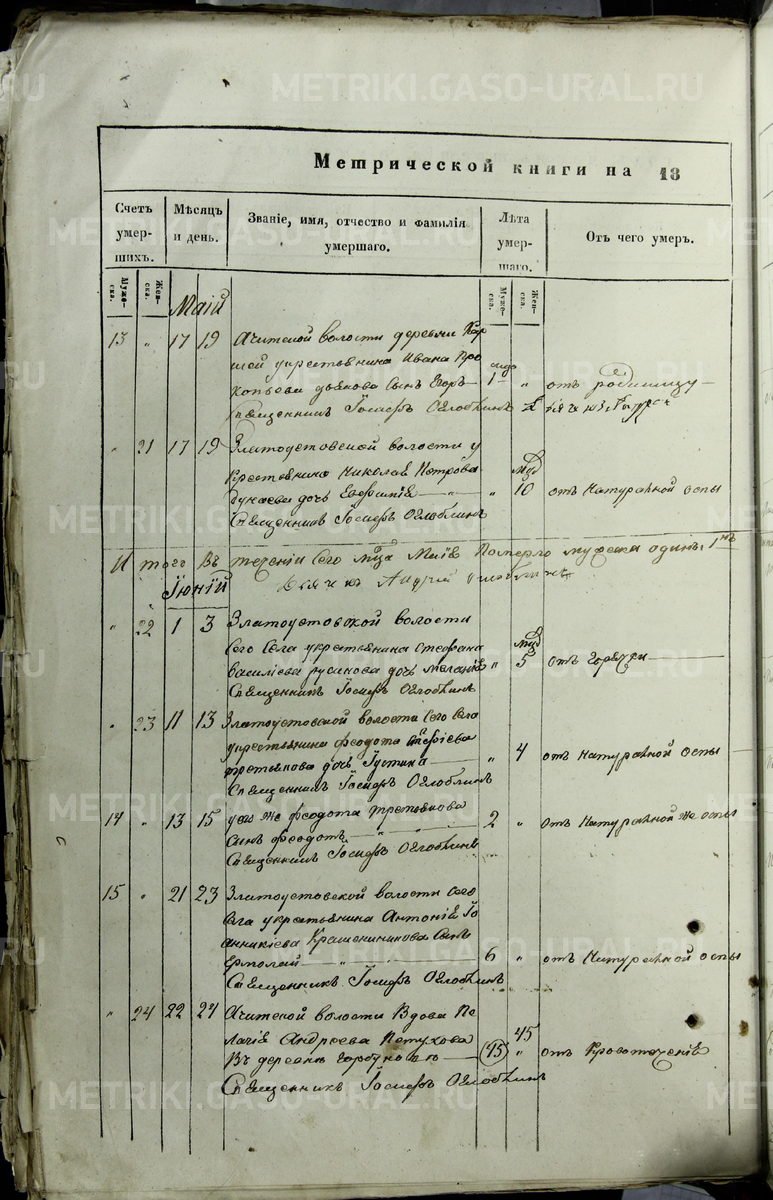 METRIKI.GASO-URAL.RU
Метрической книги на 18
Счетъ умер-шихъ.
Мѣсяцъ и день.
Званіе, имя, отчество и фамилія умершаго.
Лѣта умер-шаго.
Отъ чего умеръ.
Муже-ска. Жен-ска. Муже-ска. Жен-ска.
Маій
13 " 17 19 Ачитской волости деревни
укрестьянина Ивана Про
копьева сынъ Егоръ 1 " отъ родимцу
Священникъ Іосифъ Оглоблинъ
" 21 17 19 Златоустовской волости у
крестьянина Николая Петрова
дочь " 10 отъ Натуральной оспы
Священникъ Іосифъ Оглоблинъ
Итого въ теченіи сего Маія Померло мужеска одинъ 1
Іюній
" 22 1 3 Златоустовской волости
сего села укрестьянина Стефана
Василіева Русинова дочь Меланія " 5 отъ горячки
Священникъ Іосифъ Оглоблинъ
" 23 11 13 Златоустовской волости сего села
укрестьянина Феодота
Третьякова дочь Іустина " 4 отъ Натуральной оспы
Священникъ Іосифъ Оглоблинъ
14 " 13 15 же Феодота Третьякова
сынъ Феодотъ 2 " отъ Натуральной же оспы
Священникъ Іосифъ Оглоблинъ
15 " 21 23 Златоустовской волости сего
села укрестьянина Антонія Іо
анникіева Крашенинникова сынъ
Ермолай 6 " отъ Натуральной оспы
Священникъ Іосифъ Оглоблинъ
" 24 22 24 Ачитской волости Вдова Пе
лагія Андреева Петухова 45
въ деревне (45) " отъ Кровотеченія
Священникъ Іосифъ Оглоблинъ